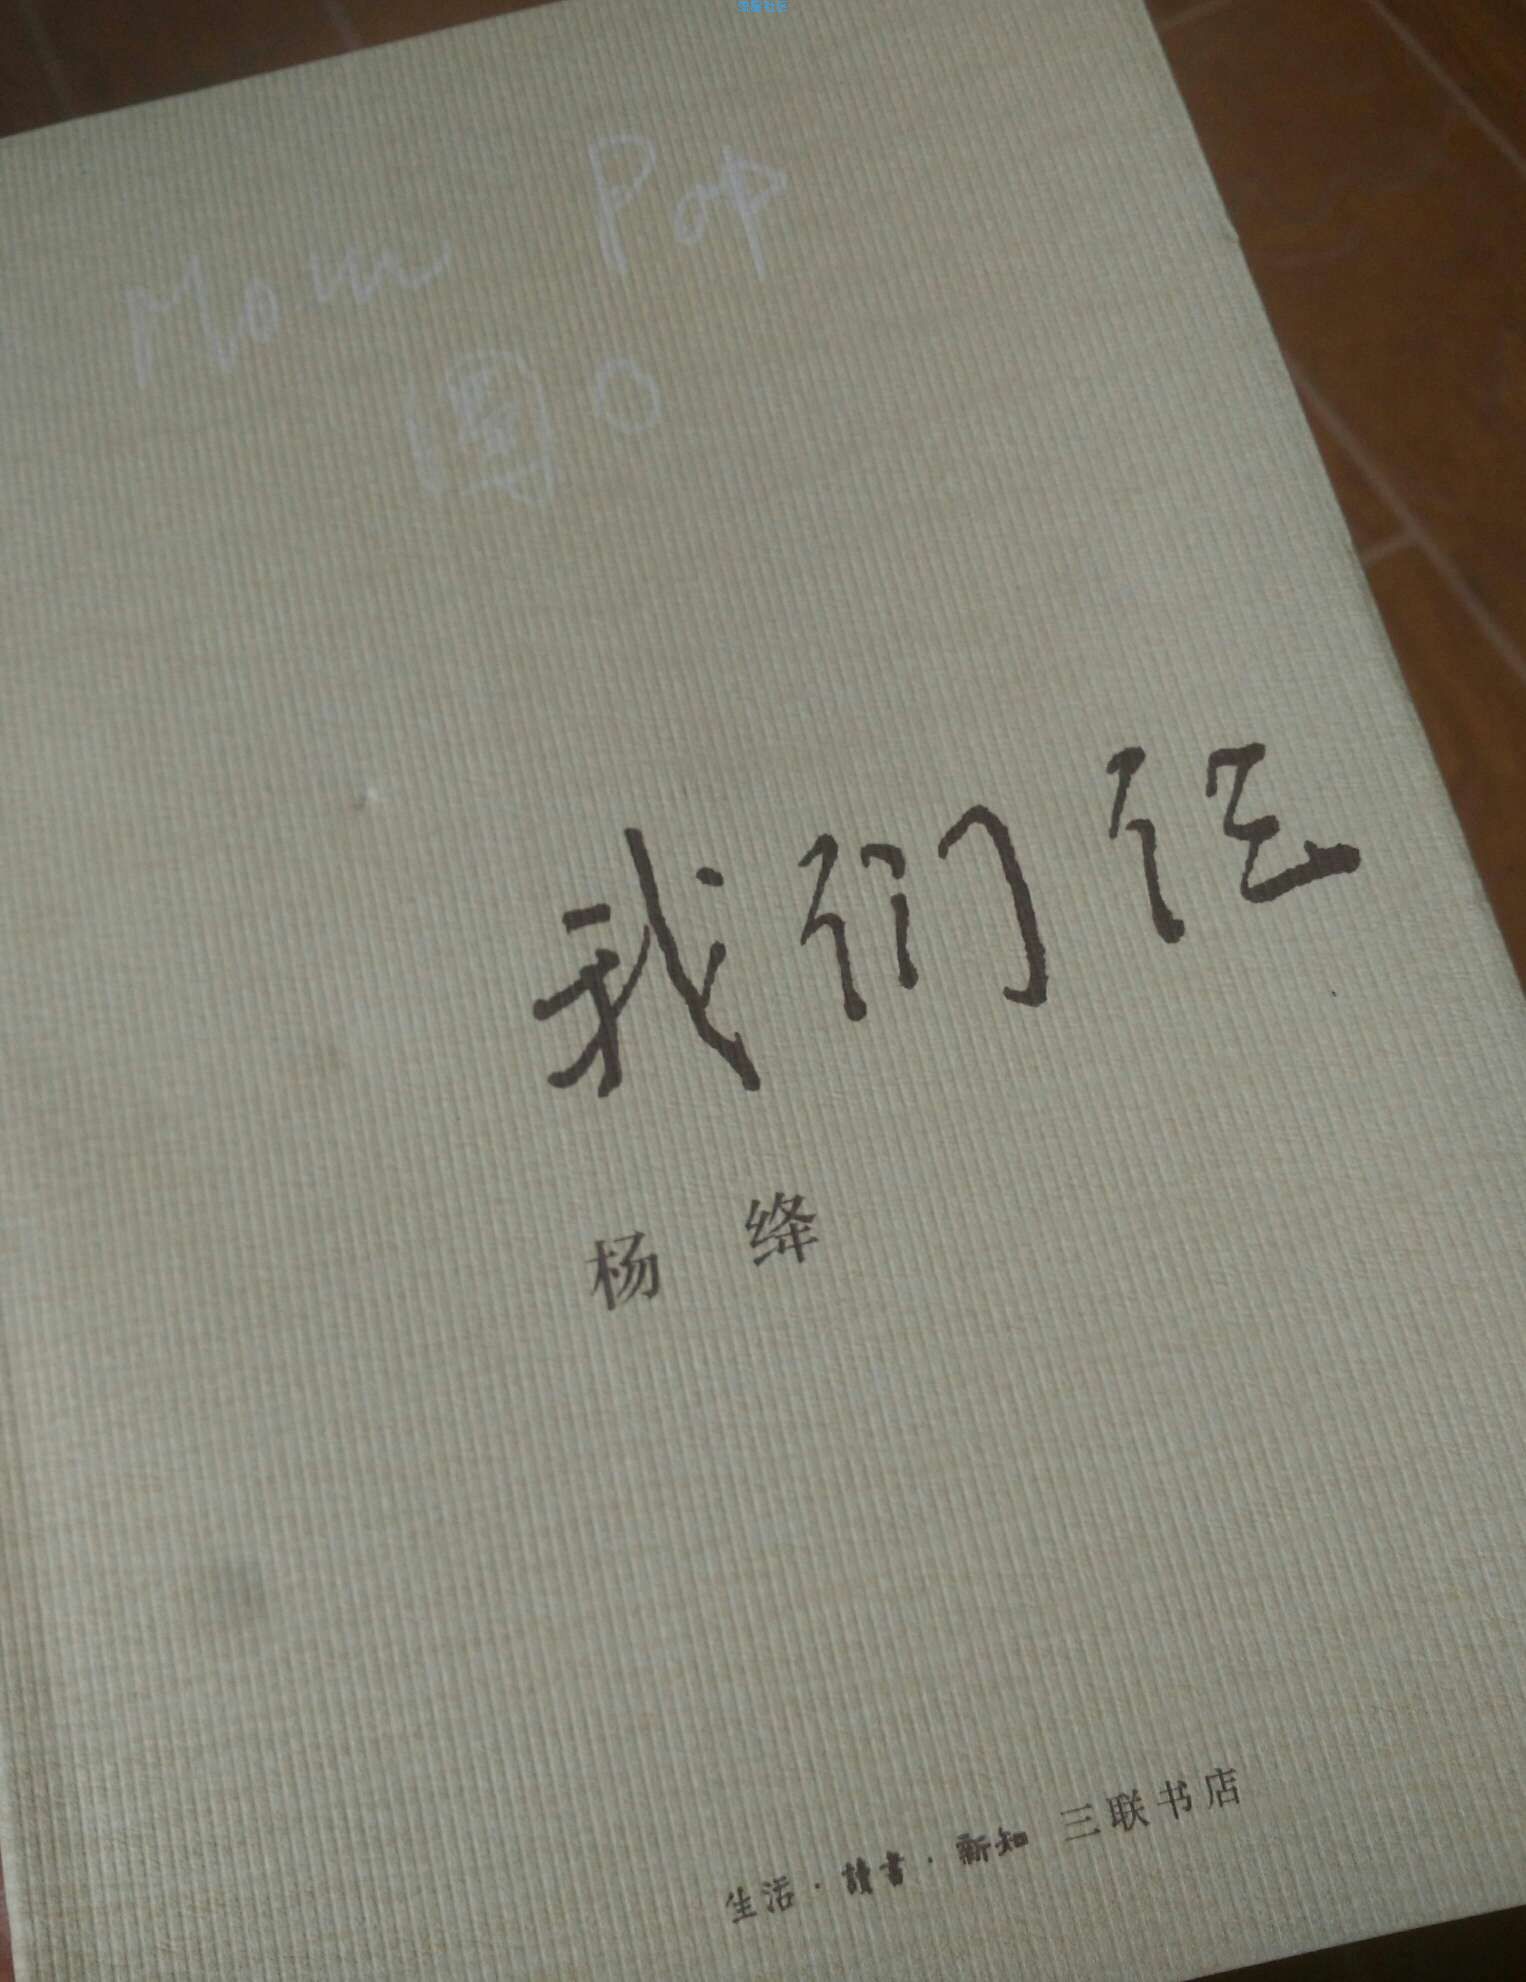 Mom Pop
圆〇
我们仨
杨绛
生活·讀書·新知 三联书店